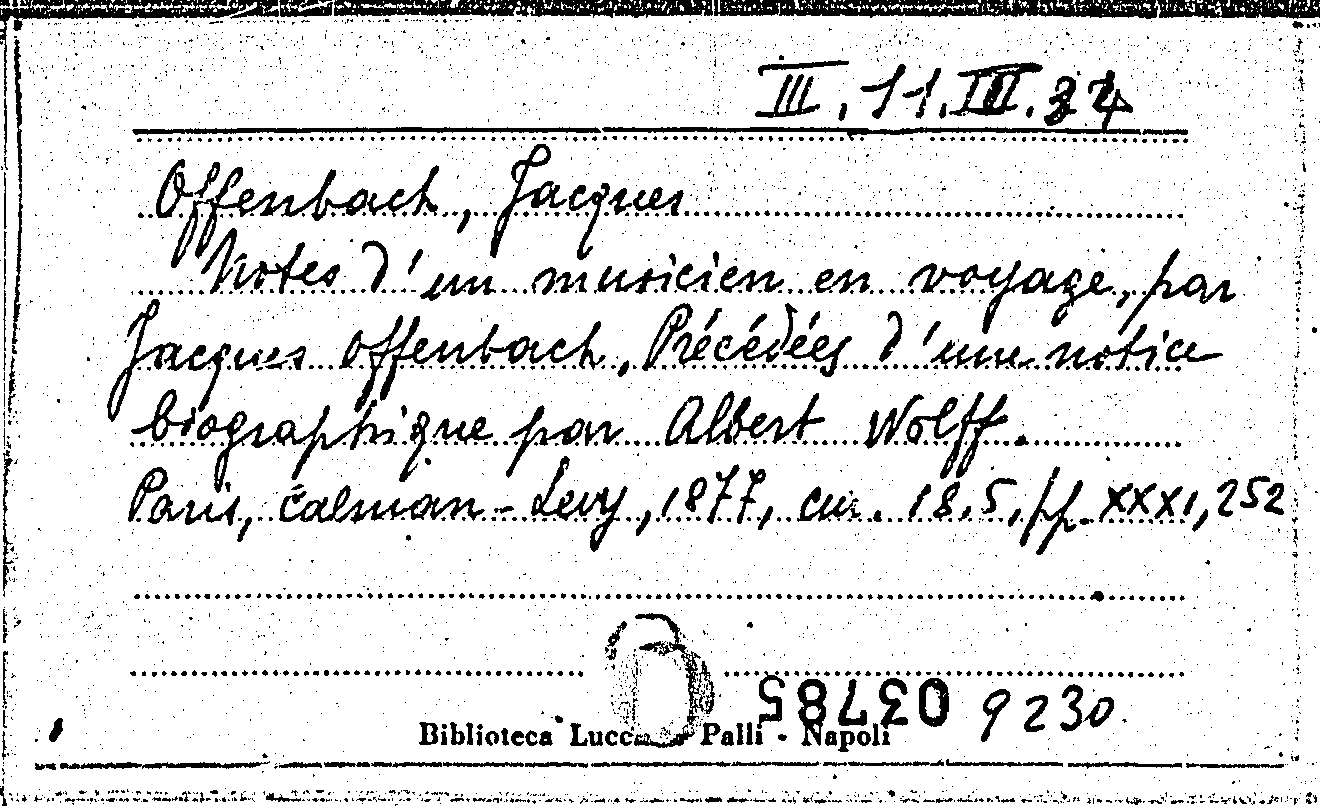 III.11.III.
Offenbach, Jacques
Notes d'un musicien en voyage, par
Jacques Offenbach, Précédées d'une notice
biographique par Albert Wolff.
Paris, Calman-Levy, 1877, cm. 18.5, pp. XXXI, 252
03785 9230
Biblioteca Palli - Napoli